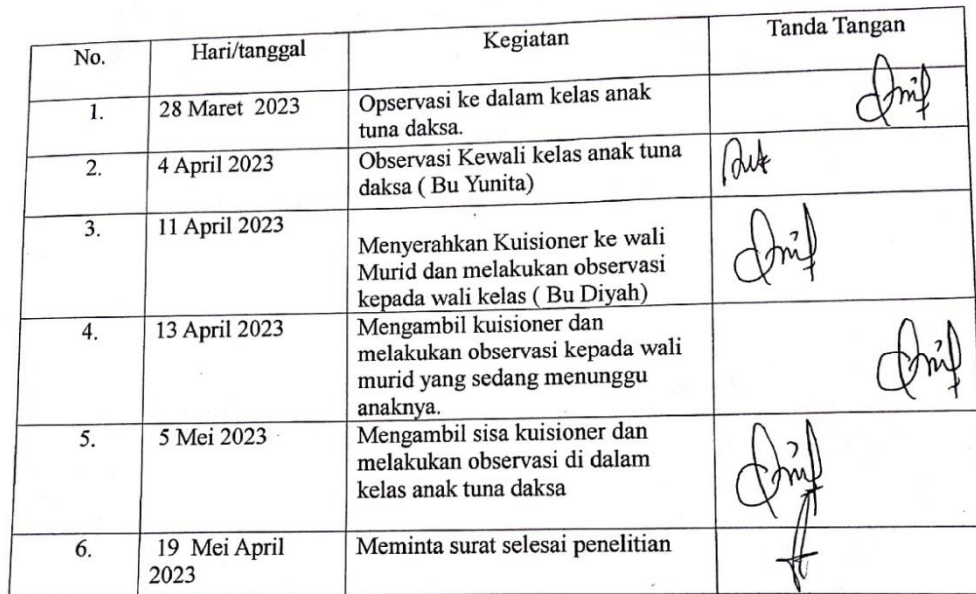 No. Hari/tanggal Kegiatan Tanda Tangan
1. 28 Maret 2023 Opservasi ke dalam kelas anak
tuna daksa.
2. 4 April 2023 Observasi Kewali kelas anak tuna
daksa ( Bu Yunita)
3. 11 April 2023
Menyerahkan Kuisioner ke wali
Murid dan melakukan observasi
kepada wali kelas ( Bu Diyah)
4. 13 April 2023 Mengambil kuisioner dan
melakukan observasi kepada wali
murid yang sedang menunggu
anaknya.
5. 5 Mei 2023 Mengambil sisa kuisioner dan
melakukan observasi di dalam
kelas anak tuna daksa
6. 19 Mei April Meminta surat selesai penelitian
2023